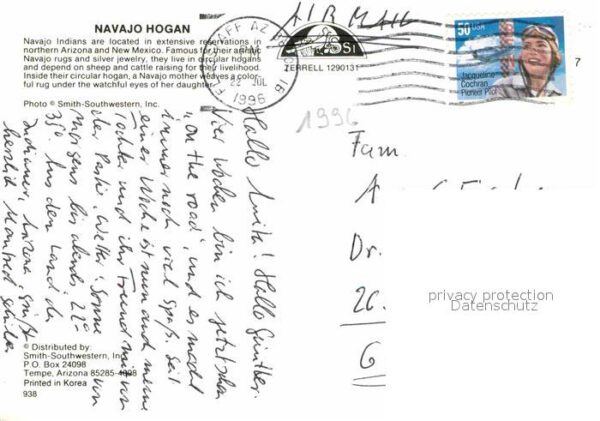 NAVAJO HOGAN
Navajo Indians are located in extensive reservations in
northern Arizona and New Mexico. Famous for their artistic
Navajo rugs and silver jewelry, they live in circular hogans
and depend on sheep and cattle raising for their livelihood.
Inside their circular hogan, a Navajo mother weaves a color-
ful rug under the watchful eyes of her daughter.
Photo © Smith-Southwestern, Inc.
AIR MAIL
FLAGSTAFF AZ
22 JUL
1996
TERRELL 1290131
50 USA
Jacqueline
Cochran
Pioneer Pilot
7
1996
Hallo Anita! Hallo Günther.
Vier Wochen bin ich jetzt schon
"on the road", und es macht
immer noch viel Spaß. Seit
einer Woche ist nun auch meine
Tochter und ihr Freund mit von
der Partie. Wetter: Sonne von
morgens bis abends, 22° -
35°. Aus dem Land der
Indianer, Arizona, grüßt
herzlich Manfred
Fam.
Dr.
26.
G
privacy protection
Datenschutz
© Distributed by:
Smith-Southwestern, Inc.
P.O. Box 24098
Tempe, Arizona 85285-4098
Printed in Korea
938